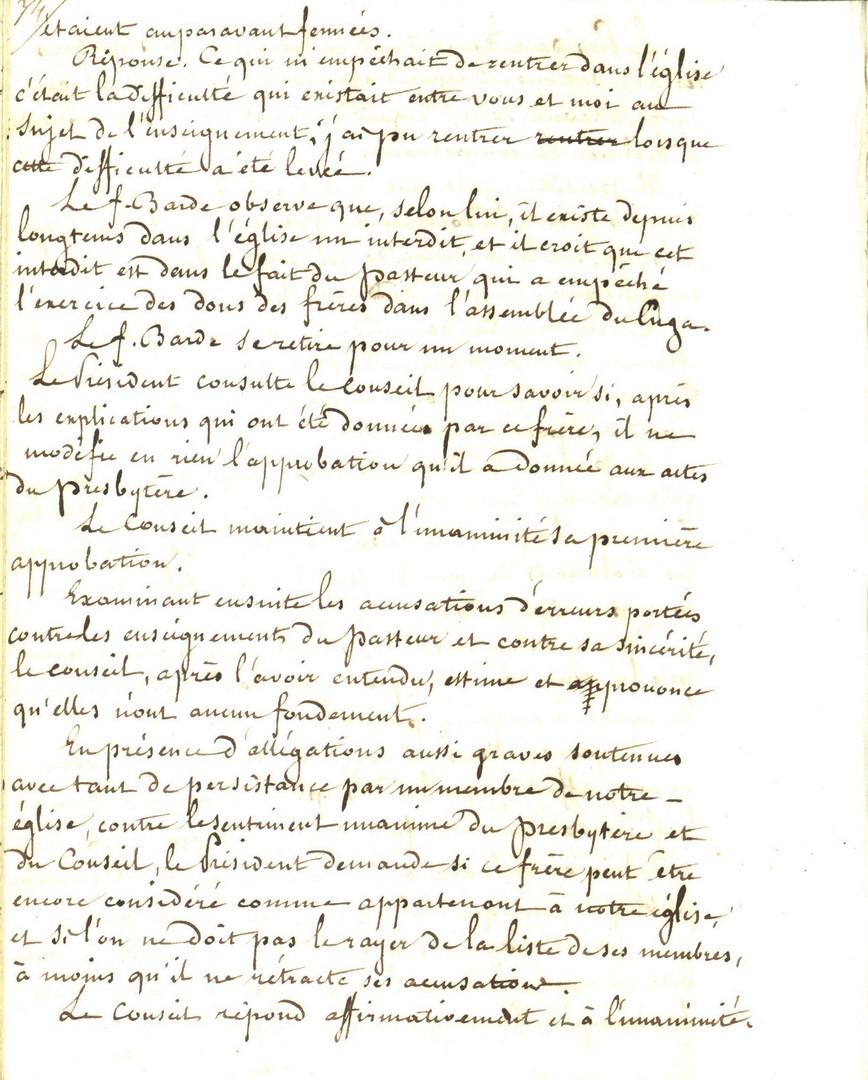 74/
étaient auparavant fermées.
Réponse. Ce qui m'empêchait de rentrer dans l'église
c'était la difficulté qui existait entre vous et moi au
sujet de l'enseignement; j'ai pu rentrer rentrer lorsque
cette difficulté a été levée.
Le f. Barde observe que, selon lui, il existe depuis
longtems dans l'église un interdit, et il croit que cet
interdit est dans le fait du Pasteur qui a empêché
l'exercice des dons des frères dans l'assemblée du
Le f. Barde se retire pour un moment.
Le Président consulte le Conseil pour savoir si, après
les explications qui ont été données par ce frère, il ne
modifie en rien l'approbation qu'il a donnée aux actes
du Presbytère.
Le Conseil maintient à l'unanimité sa première
approbation.
Examinant ensuite les accusations d'erreurs portées
contre les enseignements du Pasteur et contre sa sincérité,
le Conseil, après l'avoir entendu, estime et prononce
qu'elles n'ont aucun fondement.
En présence d'allégations aussi graves soutenues
avec tant de persistance par un membre de notre
église, contre le sentiment unanime du Presbytère et
du Conseil, le Président demande si ce frère peut être
encore considéré comme appartenant à notre église,
et si l'on ne doit pas le rayer de la liste de ses membres,
à moins qu'il ne rétracte ses accusations.
Le Conseil répond affirmativement et à l'unanimité.